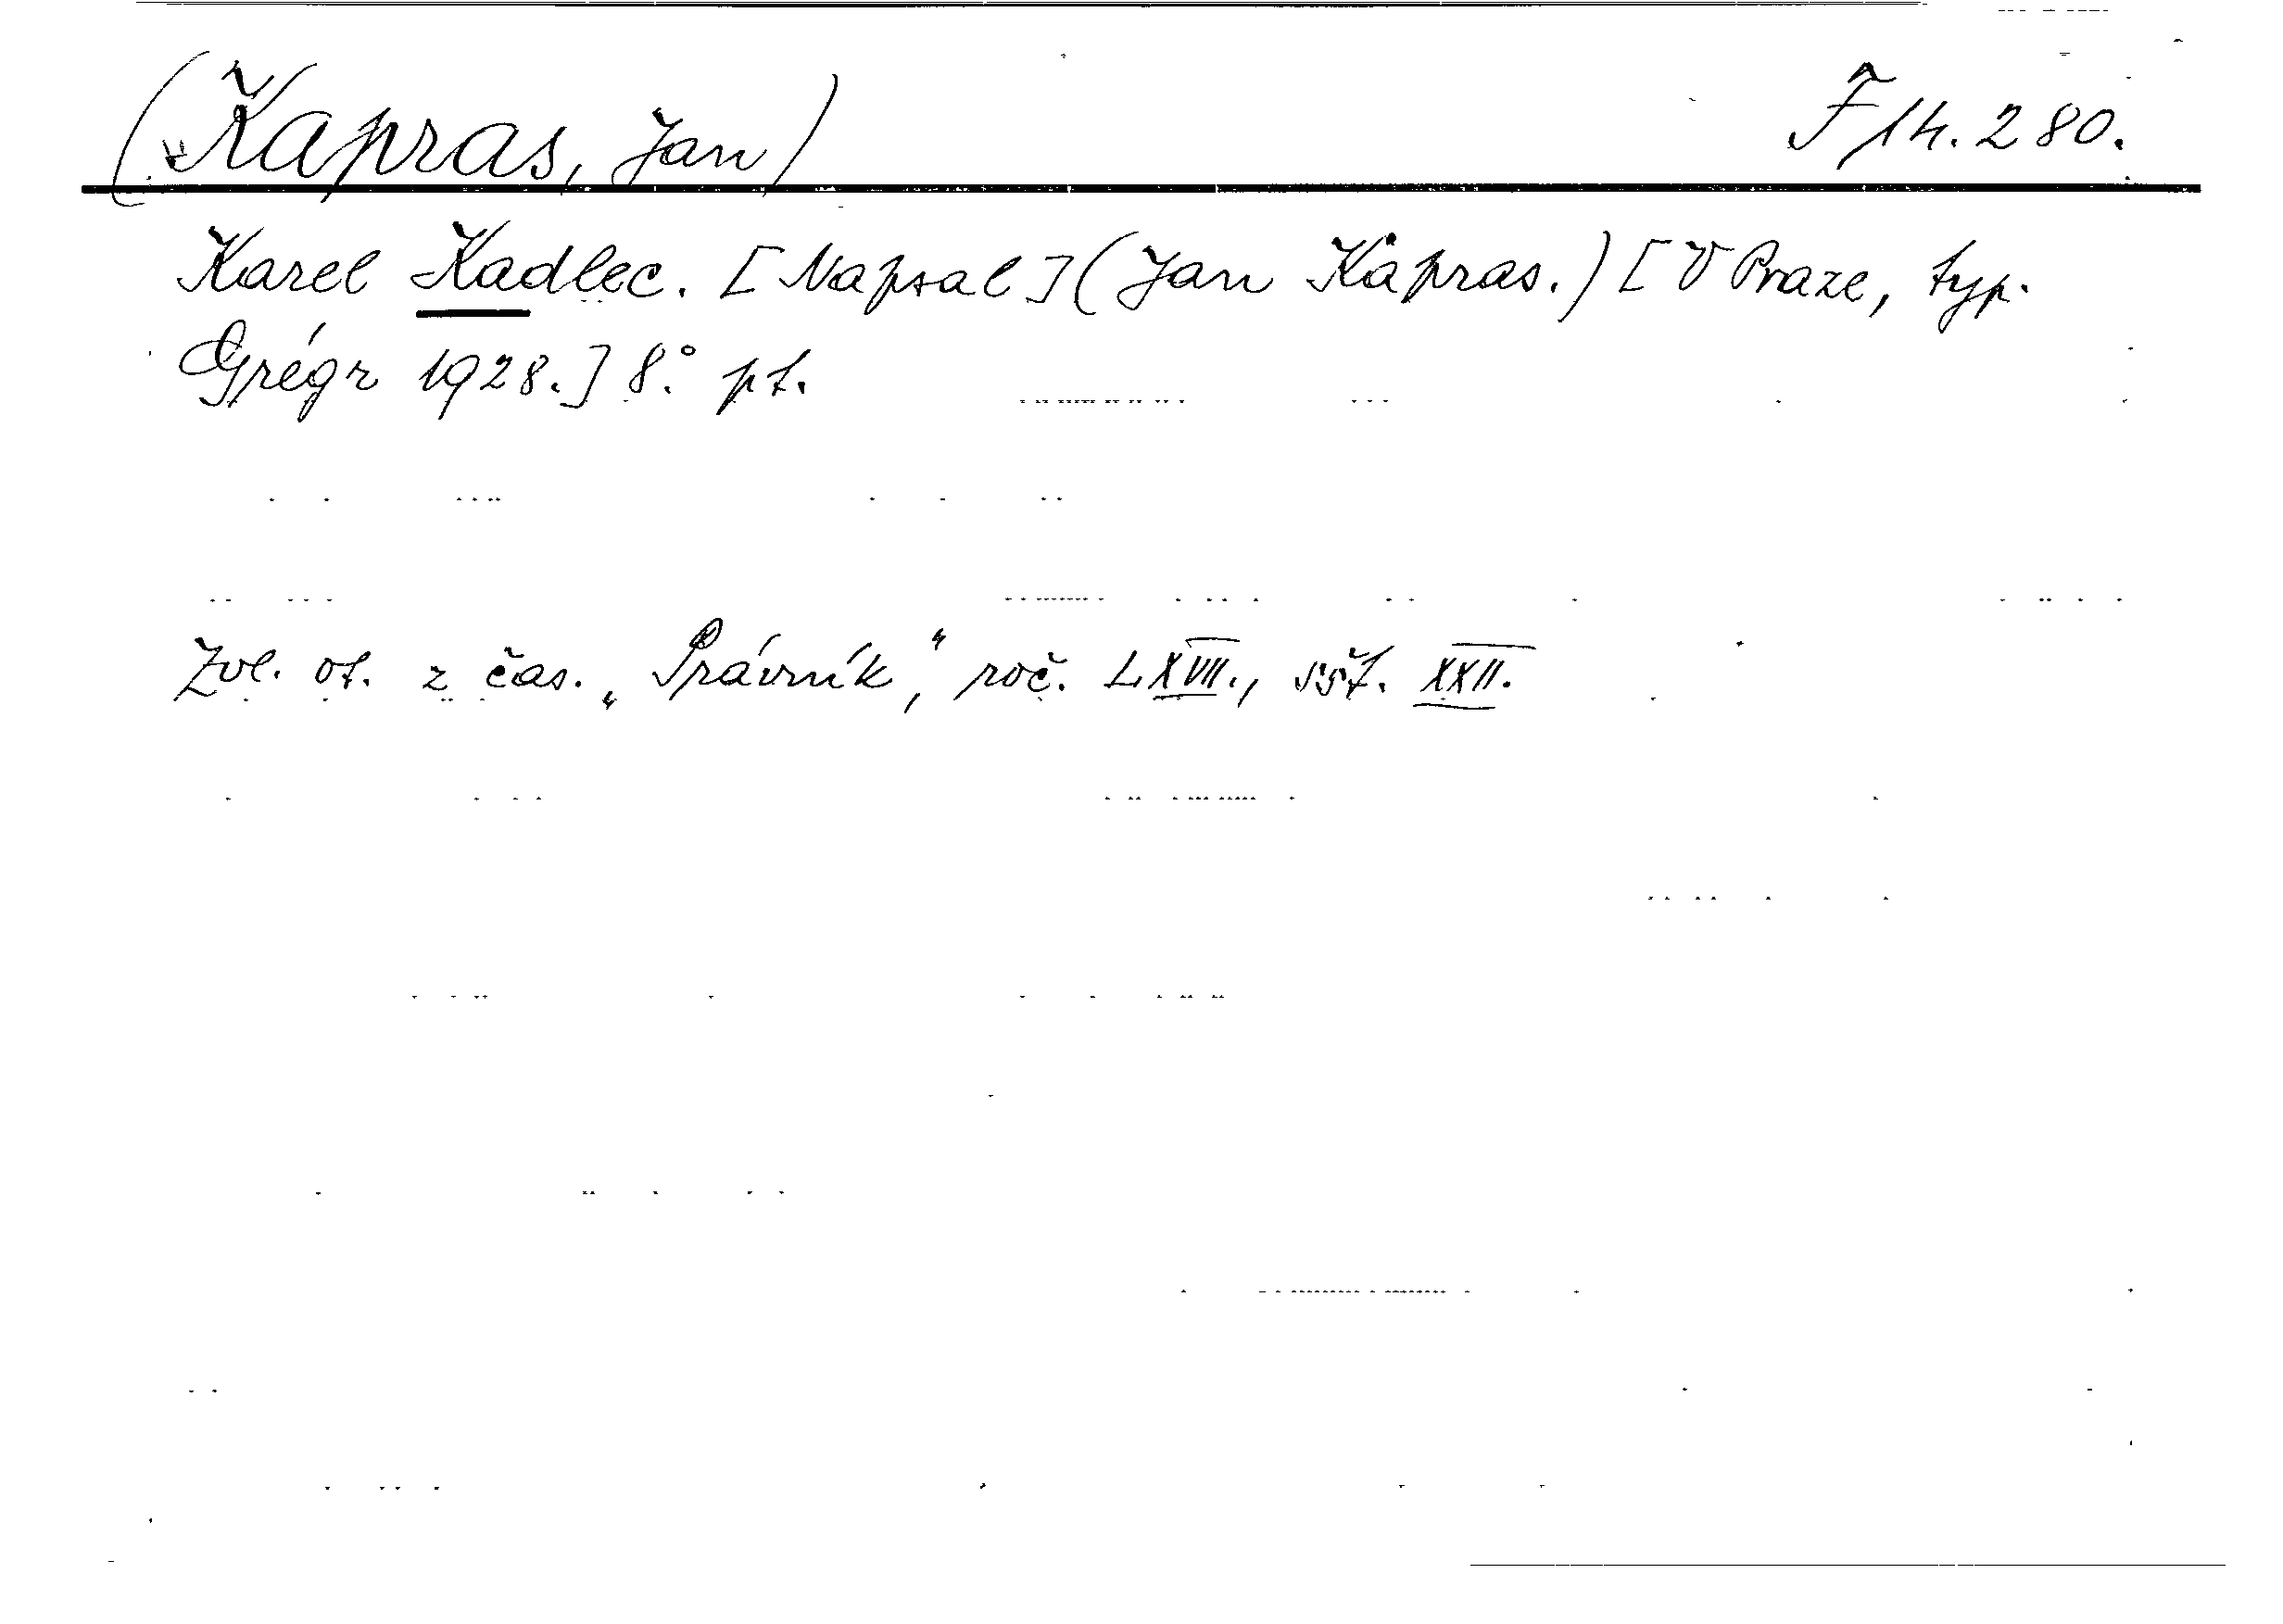 (Kapras, Jan) F 14.280.
Karel Kadlec. [Napsal] (Jan Kapras.) [V Praze, typ.
Grégr 1928.] 8.° pt.
Zvl. ot. z čas. „Právník," roč. LXVII., sšt. XXII.